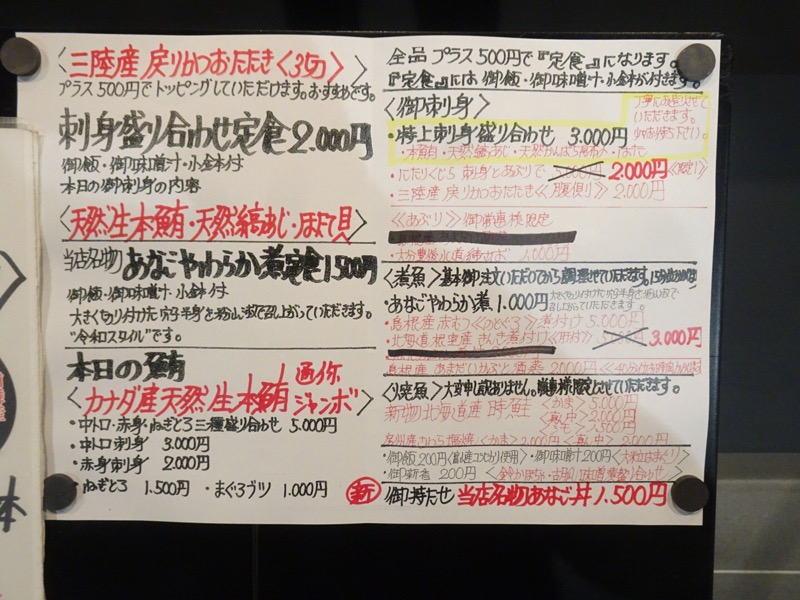 〈三陸産 戻りかつおたたき〈3切〉〉
プラス500円でトッピングしていただけます。おすすめです。
刺身盛り合わせ定食2.000円
御飯・御味噌汁・小鉢付
本日の御刺身の内容
〈天然生本鮪・天然縞あじ・ほたて貝〉
当店名物 あなごやわらか煮定食1.500円
御飯・御味噌汁・小鉢付
大きくちぎり付けた穴子半身を
召し上がっていただきます。
“令和スタイル”です。
本日の鮪
〈カナダ産天然生本鮪 通称ジャンボ〉
・中トロ・赤身・ねぎとろ三種盛り合わせ 5.000円
・中トロ刺身 3.000円
・赤身刺身 2.000円
・ねぎとろ 1.500円 ・まぐろブツ 1.000円
全品プラス500円で『定食』になります。
『定食』には御飯・御味噌汁・小鉢が付きます。
〈御刺身〉
・特上刺身盛り合わせ 3.000円
いただきます。
・本鮪・天然縞あじ・天然かんぱち
刺身とあぶりで 2.000円
・三陸産 戻りかつおたたき〈腹側〉 2.000円
〈あぶり〉
1.000円
〈煮魚〉基本御注文いただいてから調理させていただきます。
・あなごやわらか煮 1.000円
・島根産 赤むつ〈のどぐろ〉煮付け 5.000円
・北海道根室産 きんき煮付け 3.000円
・島根産 あまだい 酒蒸 2.000円
〈焼魚〉大変申し訳ありません。
新物北海道産 時鮭 〈かま〉 2.000円
〈真中〉 2.000円
さわら 〈かま〉 2.000円 〈真中〉 2.000円
・御飯 200円 ・御味噌汁 200円
・御新香 200円
新 御持たせ 当店名物あなご丼 1.500円